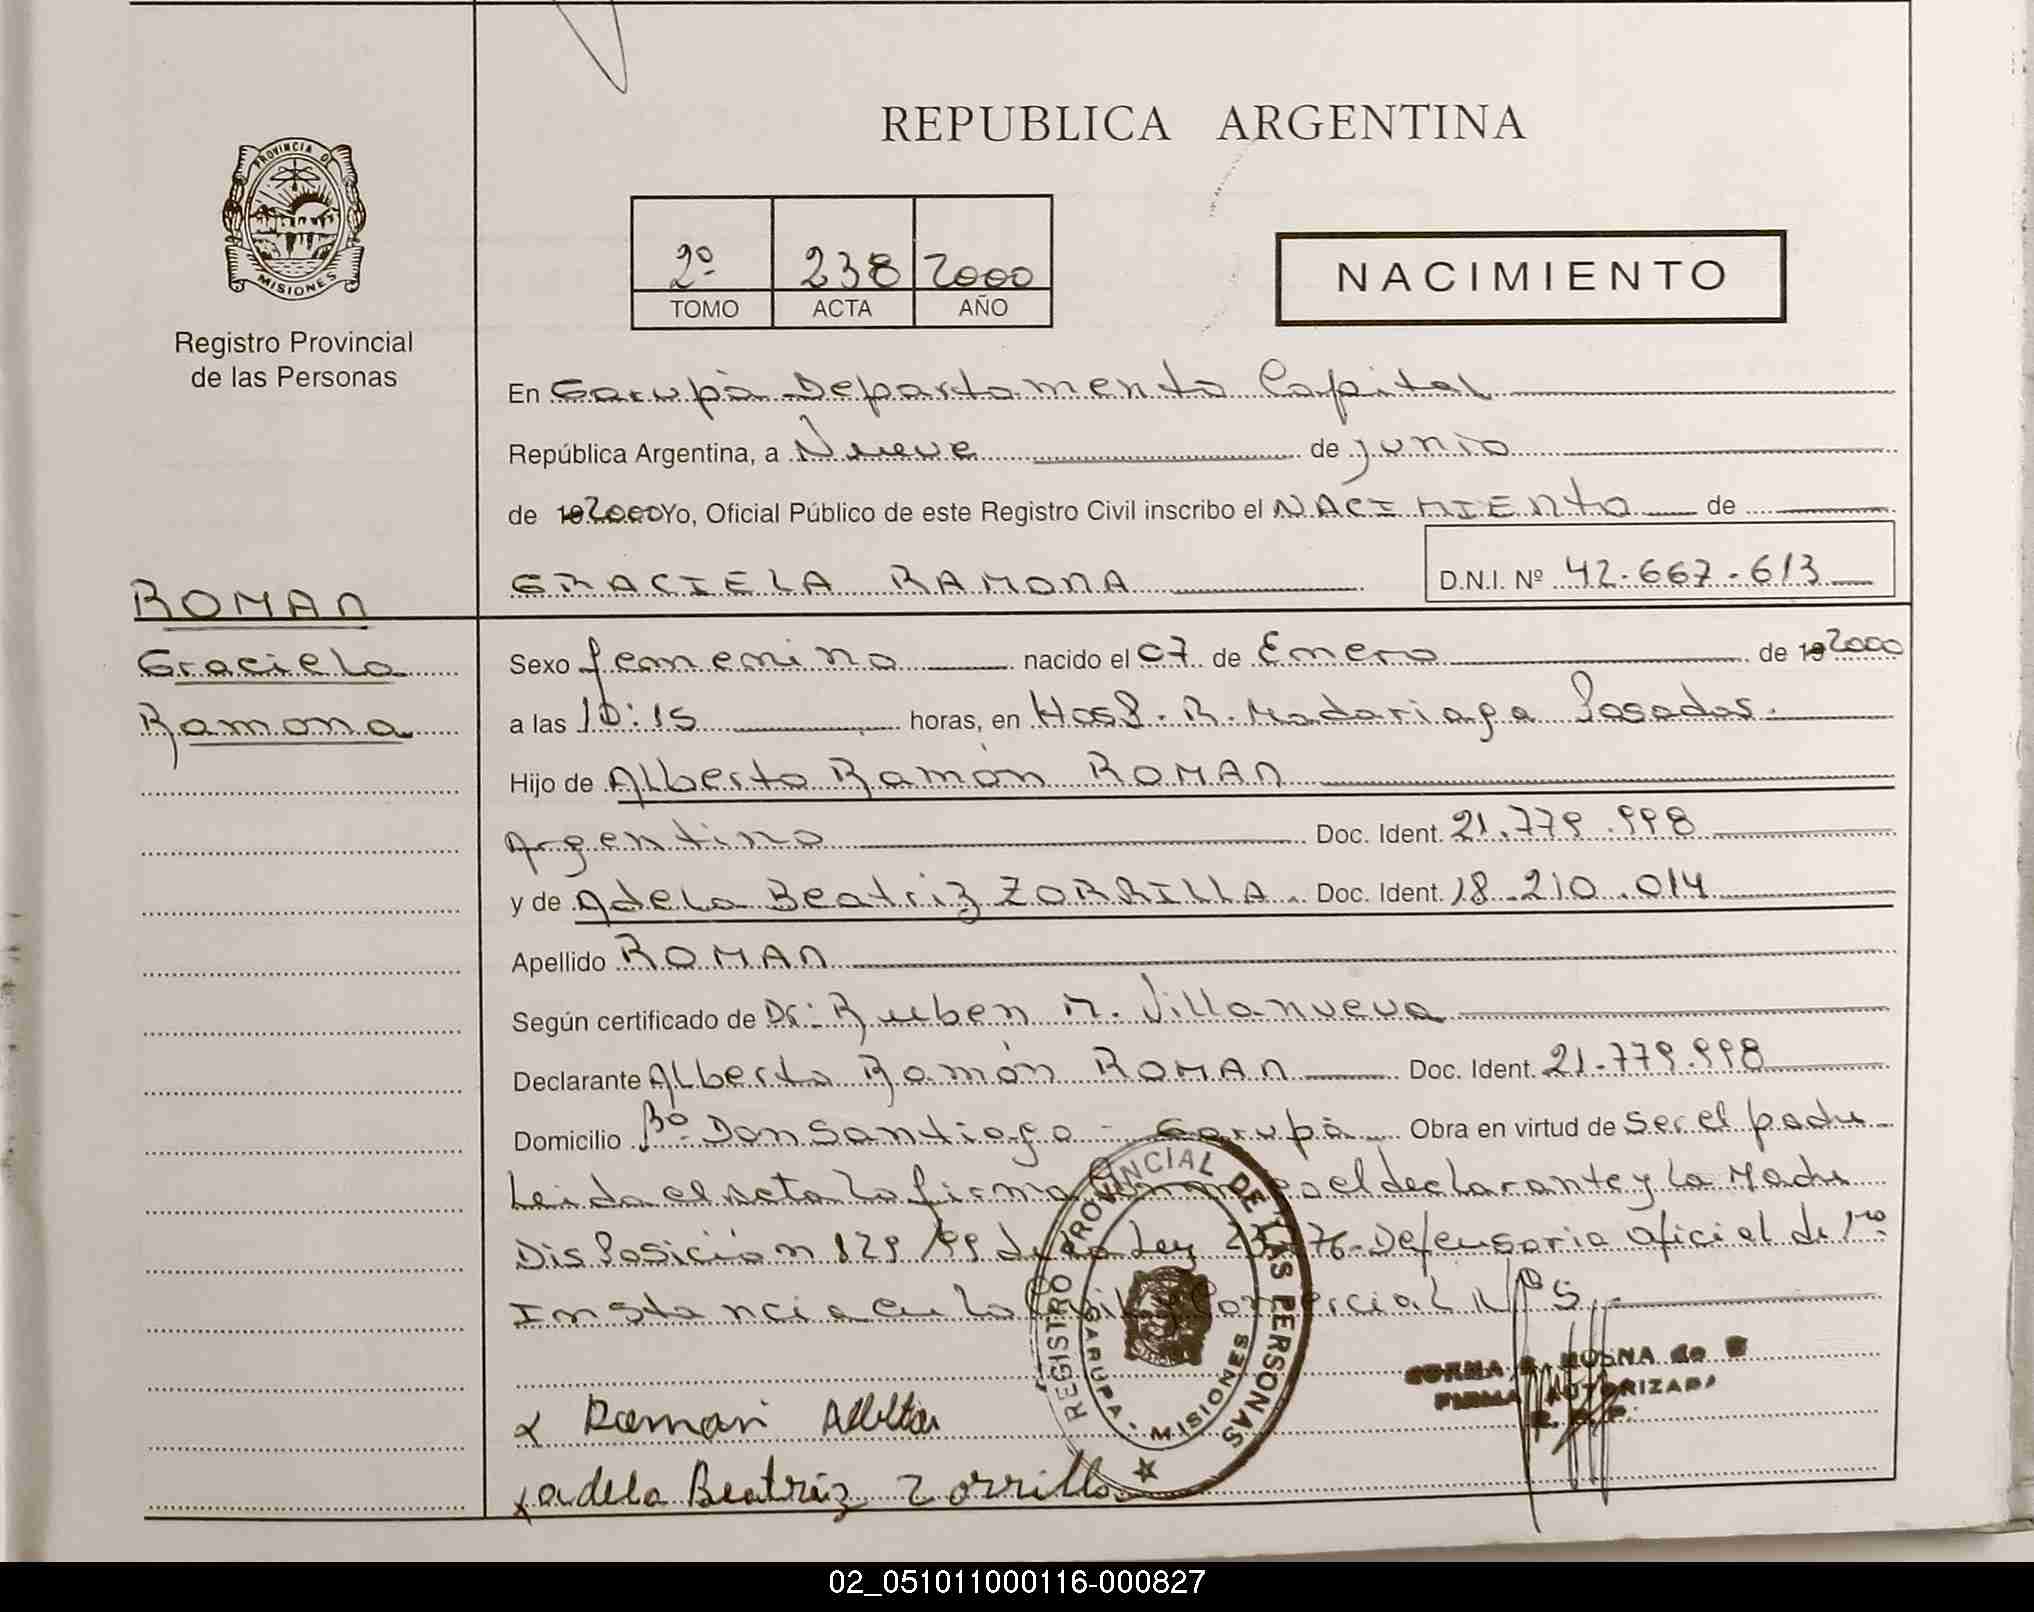 REPUBLICA ARGENTINA
PROVINCIA DE
MISIONES
Registro Provincial
de las Personas
2º 238 2000
TOMO ACTA AÑO
NACIMIENTO
En Garupà Departamento Capital
República Argentina, a Nueve de junio
de 19 2000 Yo, Oficial Público de este Registro Civil inscribo el NACIMIENto de
GRACIELA RAMONA D.N.I. Nº 42.667.613
ROMAN
Graciela
Ramona
Sexo femenino nacido el 07 de Enero de 19 2000
a las 10:15 horas, en HosP. R. Madariaga Posadas.
Hijo de Alberto Ramón ROMAN
Argentino Doc. Ident. 21.779.998
y de Adela Beatriz ZORRILLA Doc. Ident. 18.210.014
Apellido ROMAN
Según certificado de Dr: Ruben M. Villanueva
Declarante Alberto Ramón ROMAN Doc. Ident. 21.779.998
Domicilio Bº Don Santiago - Garupà Obra en virtud de ser el padre
Leida el acta la firma el declarante y la Madre
DisPosición 129/99 de la Ley Defensoria oficial de 1ro
Instancia en lo Civil y Comercial Nº 5
REGISTRO PROVINCIAL DE LAS PERSONAS
GARUPA - MISIONES
FIRMA AUTORIZADA
Roman
adela Beatriz Zorrilla
02_051011000116-000827